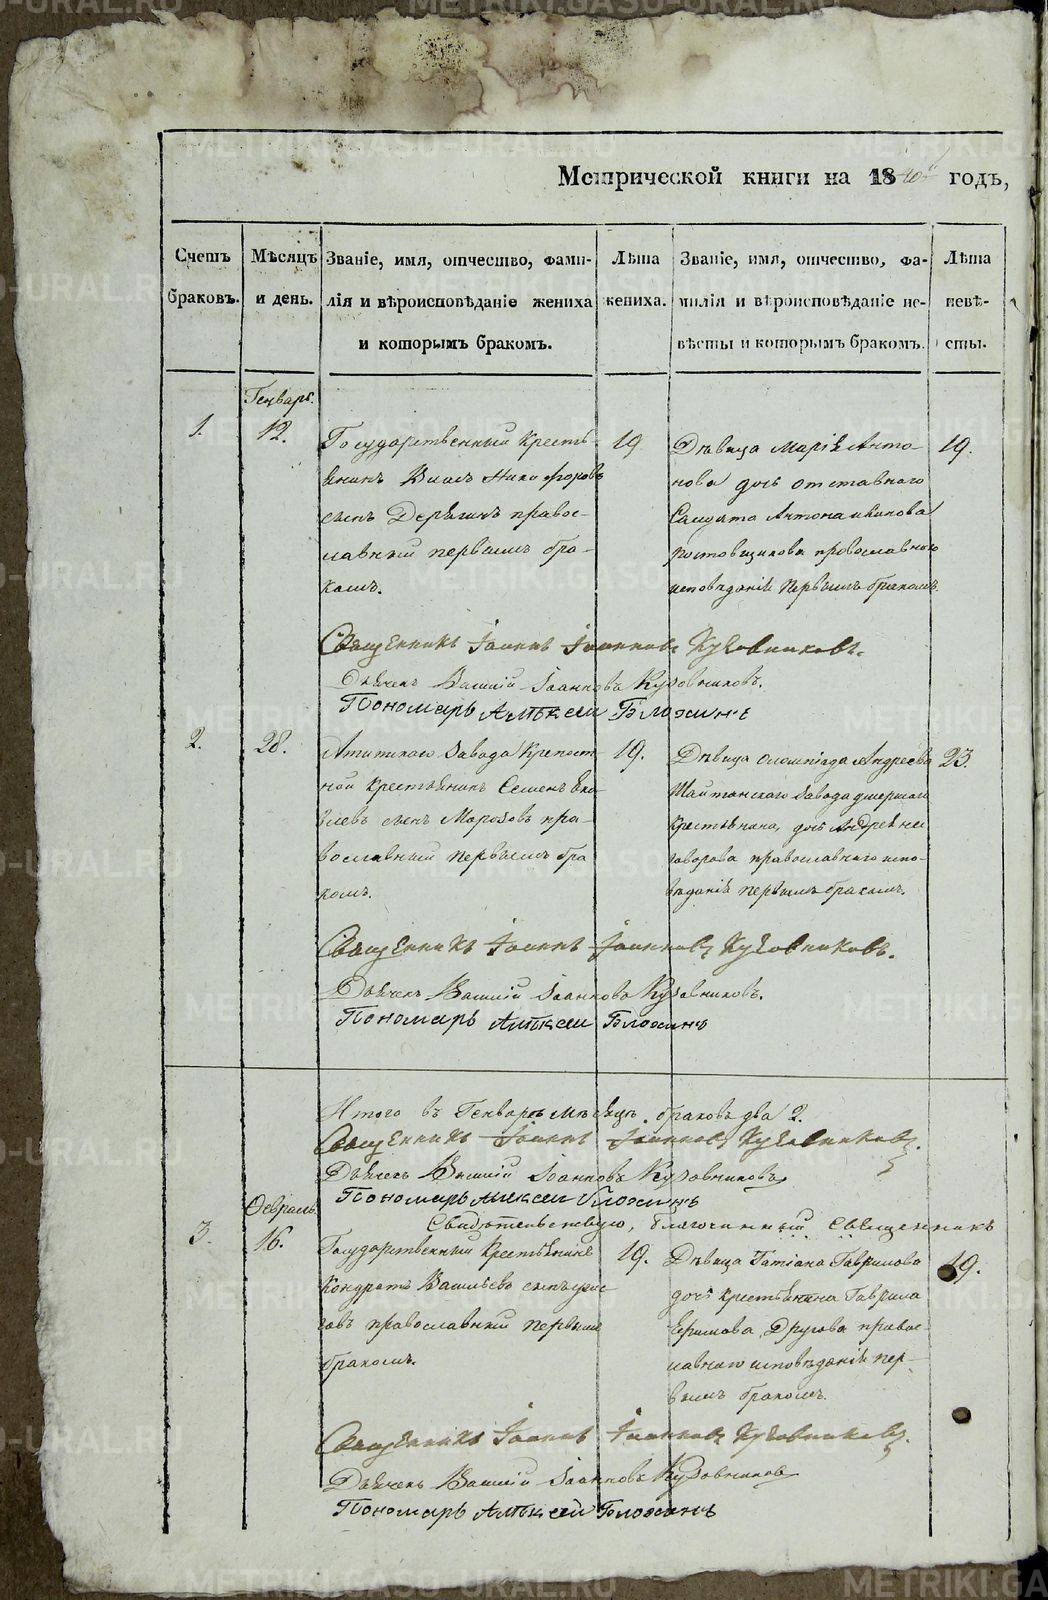 Метрической книги на 1840й годъ,
Счетъ браковъ.
Мѣсяцъ и день.
Званіе, имя, отчество, фами-
лія и вѣроисповѣданіе жениха
и которымъ бракомъ.
Лѣта жениха.
Званіе, имя, отчество, фа-
милія и вѣроисповѣданіе не-
вѣсты и которымъ бракомъ.
Лѣта невѣ-
сты.
Генварь.
1.
12.
Государственный кресть-
янинъ Власъ Никифоровъ
сынъ Дерягинъ правос-
лавный первымъ бра-
комъ.
19
Дѣвица Марія Анто-
нова дочь отставнаго
Салдата Антона
Ростовщикова православнаго
исповѣданія первымъ бракомъ.
19.
Священникъ Іоаннъ Іоанновъ Кузовниковъ.
Дьячекъ Василій Іоанновъ Кузовниковъ.
Пономарь Алѣксеи Бложинъ
2.
28.
Атигскаго Завода крепост-
ной крестьянинъ Семенъ Яко-
влевъ сынъ Морозовъ пра-
вославный первымъ бра
комъ.
19.
Дѣвица Олимпіада Андреева
Шайтанскаго Завода умершаго
крестьянина, дочь Андрея
Говорова православнаго испо-
вѣданія первымъ бракомъ.
23.
Священникъ Іоаннъ Іоанновъ Кузовниковъ.
Дьячекъ Василій Іоанновъ Кузовниковъ.
Пономарь Алѣксеи Бложинъ
Итого въ Генварѣ мѣсяцѣ браковъ два 2.
Священникъ Іоаннъ Іоанновъ Кузовниковъ.
Дьячекъ Василій Іоанновъ Кузовниковъ
Пономарь Алексеи Бложинъ
Свидѣтельствую, благочинный священникъ
Февраль.
3.
16.
Государственный Крестьянинъ
Кондратъ Васильевъ сынъ
православный первымъ
бракомъ.
19.
Дѣвица Татіана Гаврилова
дочь крестьянина Гаврила
Ефимова Другова правос-
лавнаго исповѣданія пер-
вымъ бракомъ.
19.
Священникъ Іоаннъ Іоанновъ Кузовниковъ.
Дьячекъ Василій Іоанновъ Кузовниковъ
Пономарь Алѣксеи Бложинъ